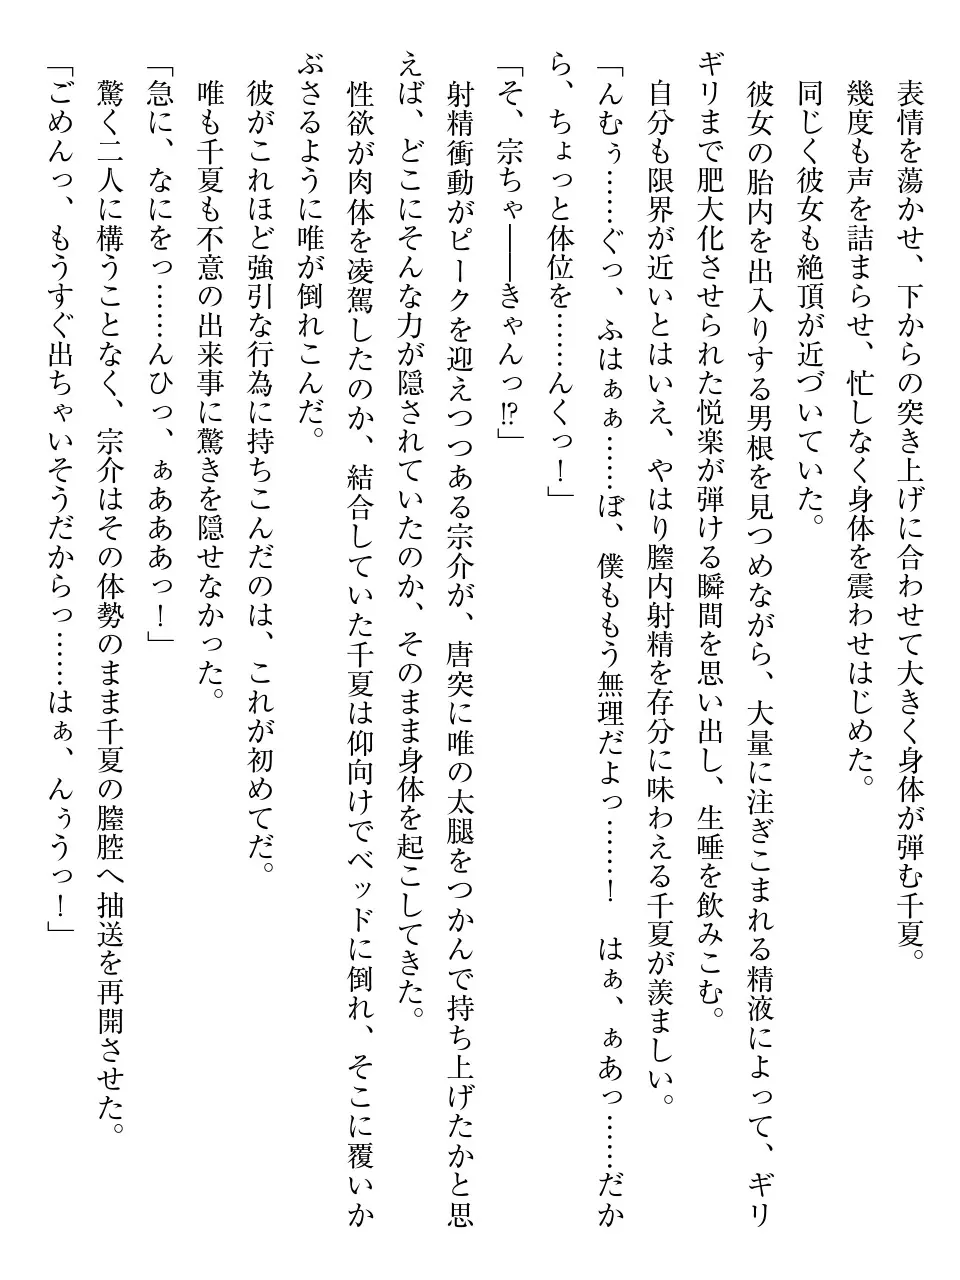 表情を蕩かせ、下からの突き上げに合わせて大きく身体が弾む千夏。
幾度も声を詰まらせ、忙しなく身体を震わせはじめた。
同じく彼女も絶頂が近づいていた。
彼女の胎内を出入りする男根を見つめながら、大量に注ぎこまれる精液によって、ギリ
ギリまで肥大化させられた悦楽が弾ける瞬間を思い出し、生唾を飲みこむ。
自分も限界が近いとはいえ、やはり膣内射精を存分に味わえる千夏が羨ましい。
「んむぅ……ぐっ、ふはぁぁ……ぼ、僕ももう無理だよっ……！　はぁ、ぁあっ……だか
ら、ちょっと体位を……んくっ！」
「そ、宗ちゃ――きゃんっ!?」
射精衝動がピークを迎えつつある宗介が、唐突に唯の太腿をつかんで持ち上げたかと思
えば、どこにそんな力が隠されていたのか、そのまま身体を起こしてきた。
性欲が肉体を凌駕したのか、結合していた千夏は仰向けでベッドに倒れ、そこに覆いか
ぶさるように唯が倒れこんだ。
彼がこれほど強引な行為に持ちこんだのは、これが初めてだ。
唯も千夏も不意の出来事に驚きを隠せなかった。
「急に、なにをっ……んひっ、ぁあああっ！」
驚く二人に構うことなく、宗介はその体勢のまま千夏の膣腔へ抽送を再開させた。
「ごめんっ、もうすぐ出ちゃいそうだからっ……はぁ、んぅうっ！」